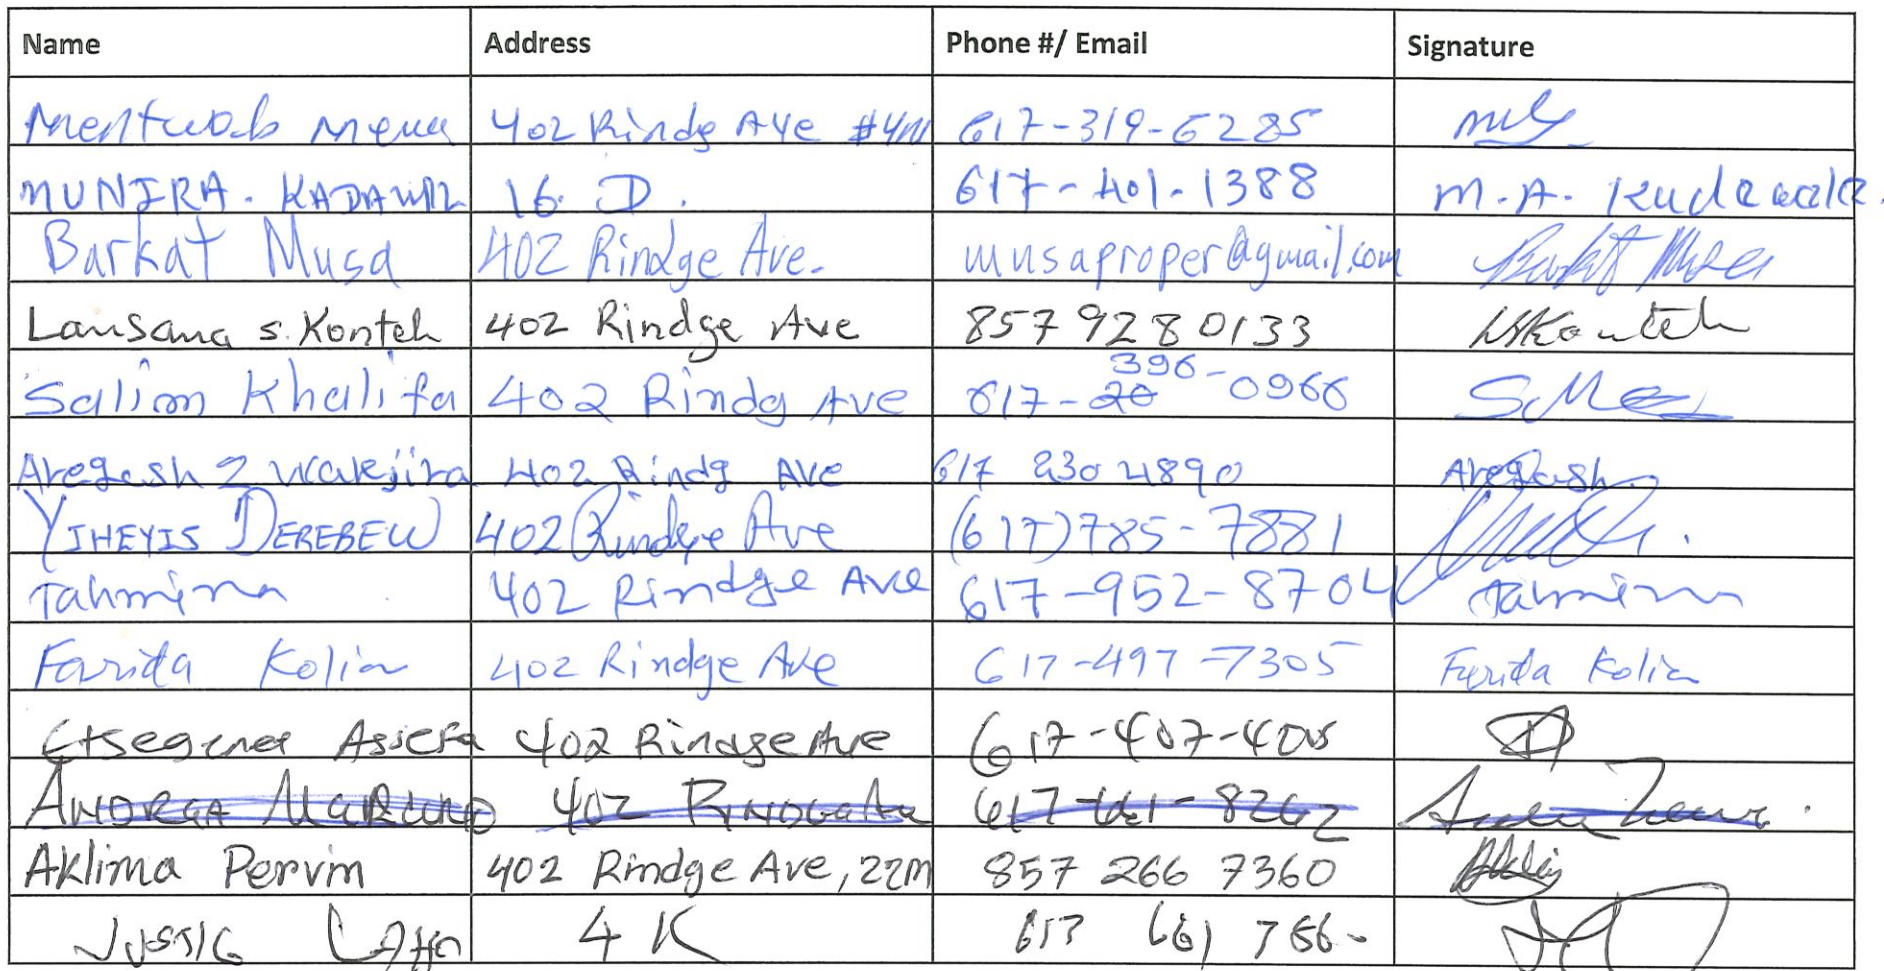 Name Address Phone #/ Email Signature
Mentwab 402 Rindg Ave #4M 617-319-6285
MUNIRA. 16. D. 617-401-1388 M.A.
Barkat Musa 402 Rindge Ave. musaproper@gmail.com Barkat Musa
Lansana S. Konteh 402 Rindge Ave 857 928 0133 Konteh
Salim Khalifa 402 Rindg Ave 617-20 396-0966
Aregash Z wakjira 402 Rindg Ave 617 230 4890 Aregash
YIHEYIS DEREBEW 402 Rindge Ave (617)785-7881
Tahmina 402 Rindge Ave 617-952-8704 Tahmina
Farida Kolia 402 Rindge Ave 617-497-7305 Farida Kolia
Assefa 402 Rindge Ave 617-407-
ANDREA 402 617-661-8262
Aklima Pervin 402 Rindge Ave, 22M 857 266 7360
4K 617 661 766-